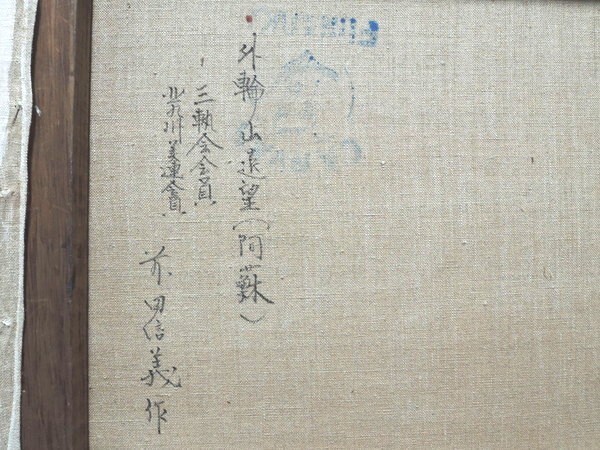 外輪山遠望（阿蘇）
三軌会会員
北九州美連会員
前田信義作